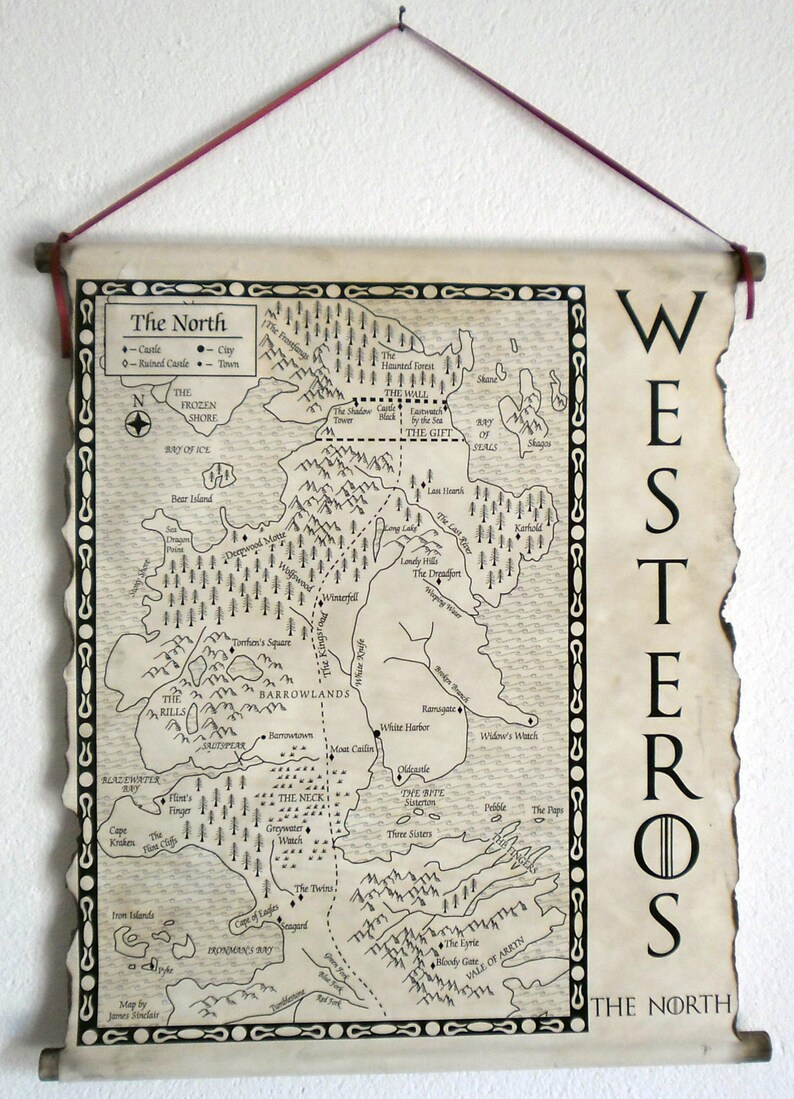 The North
– Castle
– City
– Ruined Castle
– Town
N
THE
FROZEN
SHORE
The Frostfangs
The
Haunted Forest
Skane
THE WALL
The Shadow
Tower
Castle
Black
Eastwatch
by the Sea
THE GIFT
BAY
OF
SEALS
Skagos
BAY OF ICE
Bear Island
Last Hearth
Sea
Dragon
Point
Deepwood Motte
Long Lake
The Last River
Karhold
Stony Shore
Wolfswood
Lonely Hills
The Dreadfort
Winterfell
Weeping Water
Torrhen's Square
The Kingsroad
White Knife
THE
RILLS
BARROWLANDS
Broken Branch
Ramsgate
Widow's Watch
SALTSPEAR
Barrowtown
White Harbor
Moat Cailin
Oldcastle
BLAZEWATER
BAY
Flint's
Finger
THE NECK
THE BITE
Sisterton
Pebble
The Paps
Cape
Kraken
The
Flint Cliffs
Greywater
Watch
Three Sisters
THE FINGERS
The Twins
Iron Islands
Cape of Eagles
Seagard
IRONMAN'S BAY
The Eyrie
Bloody Gate
VALE OF ARRYN
Pyke
Green Fork
Blue Fork
Red Fork
Tumblestone
Map by
James Sinclair
WESTEROS
THE NORTH